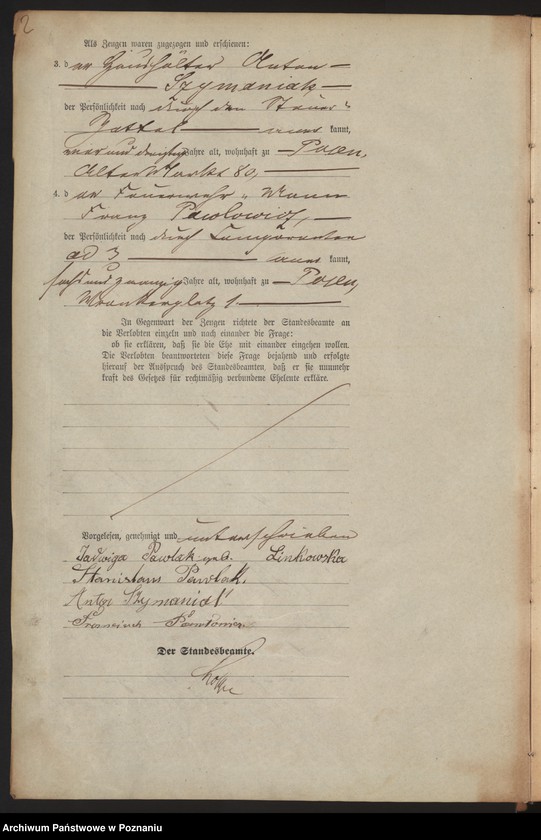 2
Als Zeugen waren zugezogen und erschienen:
3. der Haushälter Anton
Szymaniak
der Persönlichkeit nach durch den Steuer-
Zettel anerkannt,
Jahre alt, wohnhaft zu Posen,
Alter Markt 80,
4. der Feuerwehr-Mann
Franz Pawlowicz,
der Persönlichkeit nach durch Comparenten
ad 3 anerkannt,
sechsundzwanzig Jahre alt, wohnhaft zu Posen,
Wronkerplatz 1
In Gegenwart der Zeugen richtete der Standesbeamte an
die Verlobten einzeln und nach einander die Frage:
ob sie erklären, daß sie die Ehe mit einander eingehen wollen.
Die Verlobten beantworteten diese Frage bejahend und erfolgte
hierauf der Ausspruch des Standesbeamten, daß er sie nunmehr
kraft des Gesetzes für rechtmäßig verbundene Eheleute erkläre.
Vorgelesen, genehmigt und unterschrieben
Jadwiga Pawlak geb. Linkowska
Stanislaus Pawlak,
Anton Szymaniak
Der Standesbeamte.
Archiwum Państwowe w Poznaniu